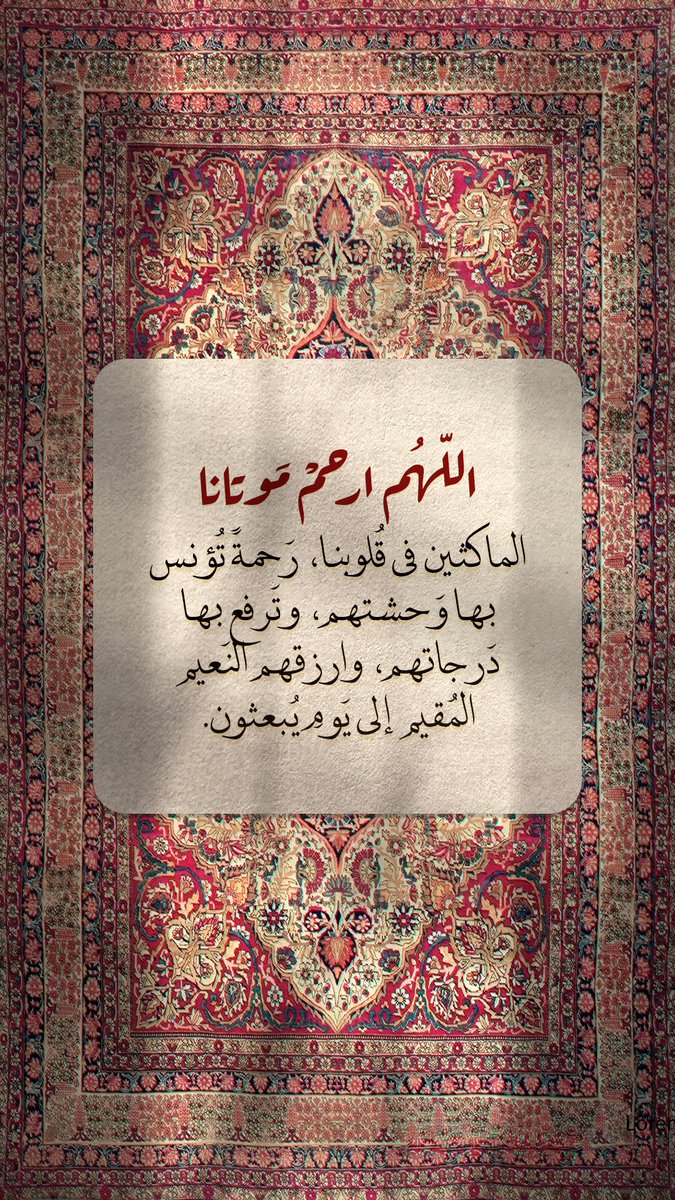 اللّهُم ارحمْ مَوتانا
الماكثين فى قُلوبنا، رَحمةً تُؤنس
بها وَحشتهم، وتَرفع بها
دَرجاتهم، وارزقهم النَعيم
المُقيم إلى يَوم يُبعثون.
Lorem